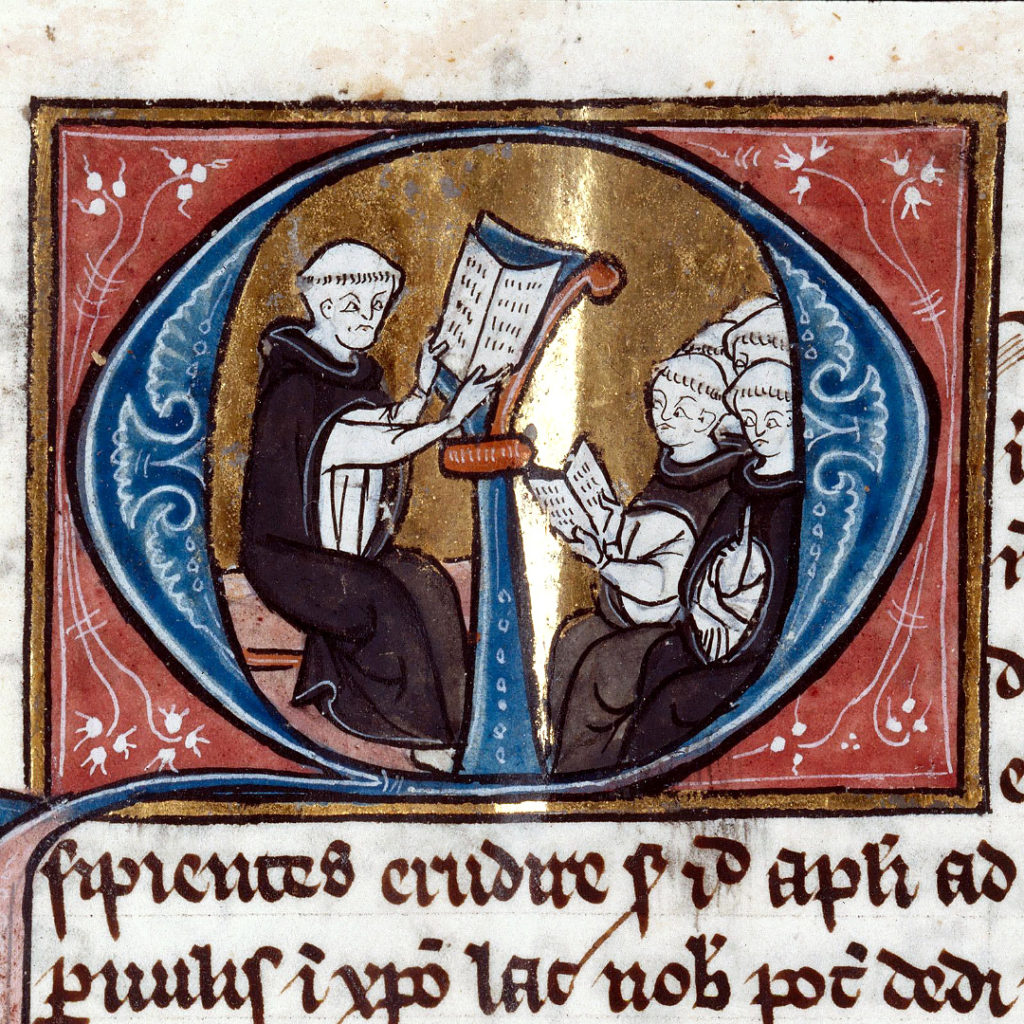 sipientes erudire ſ id apl̄i ad
ꝑuulis ī xp̄o lac uob̄ pot̄ dedi